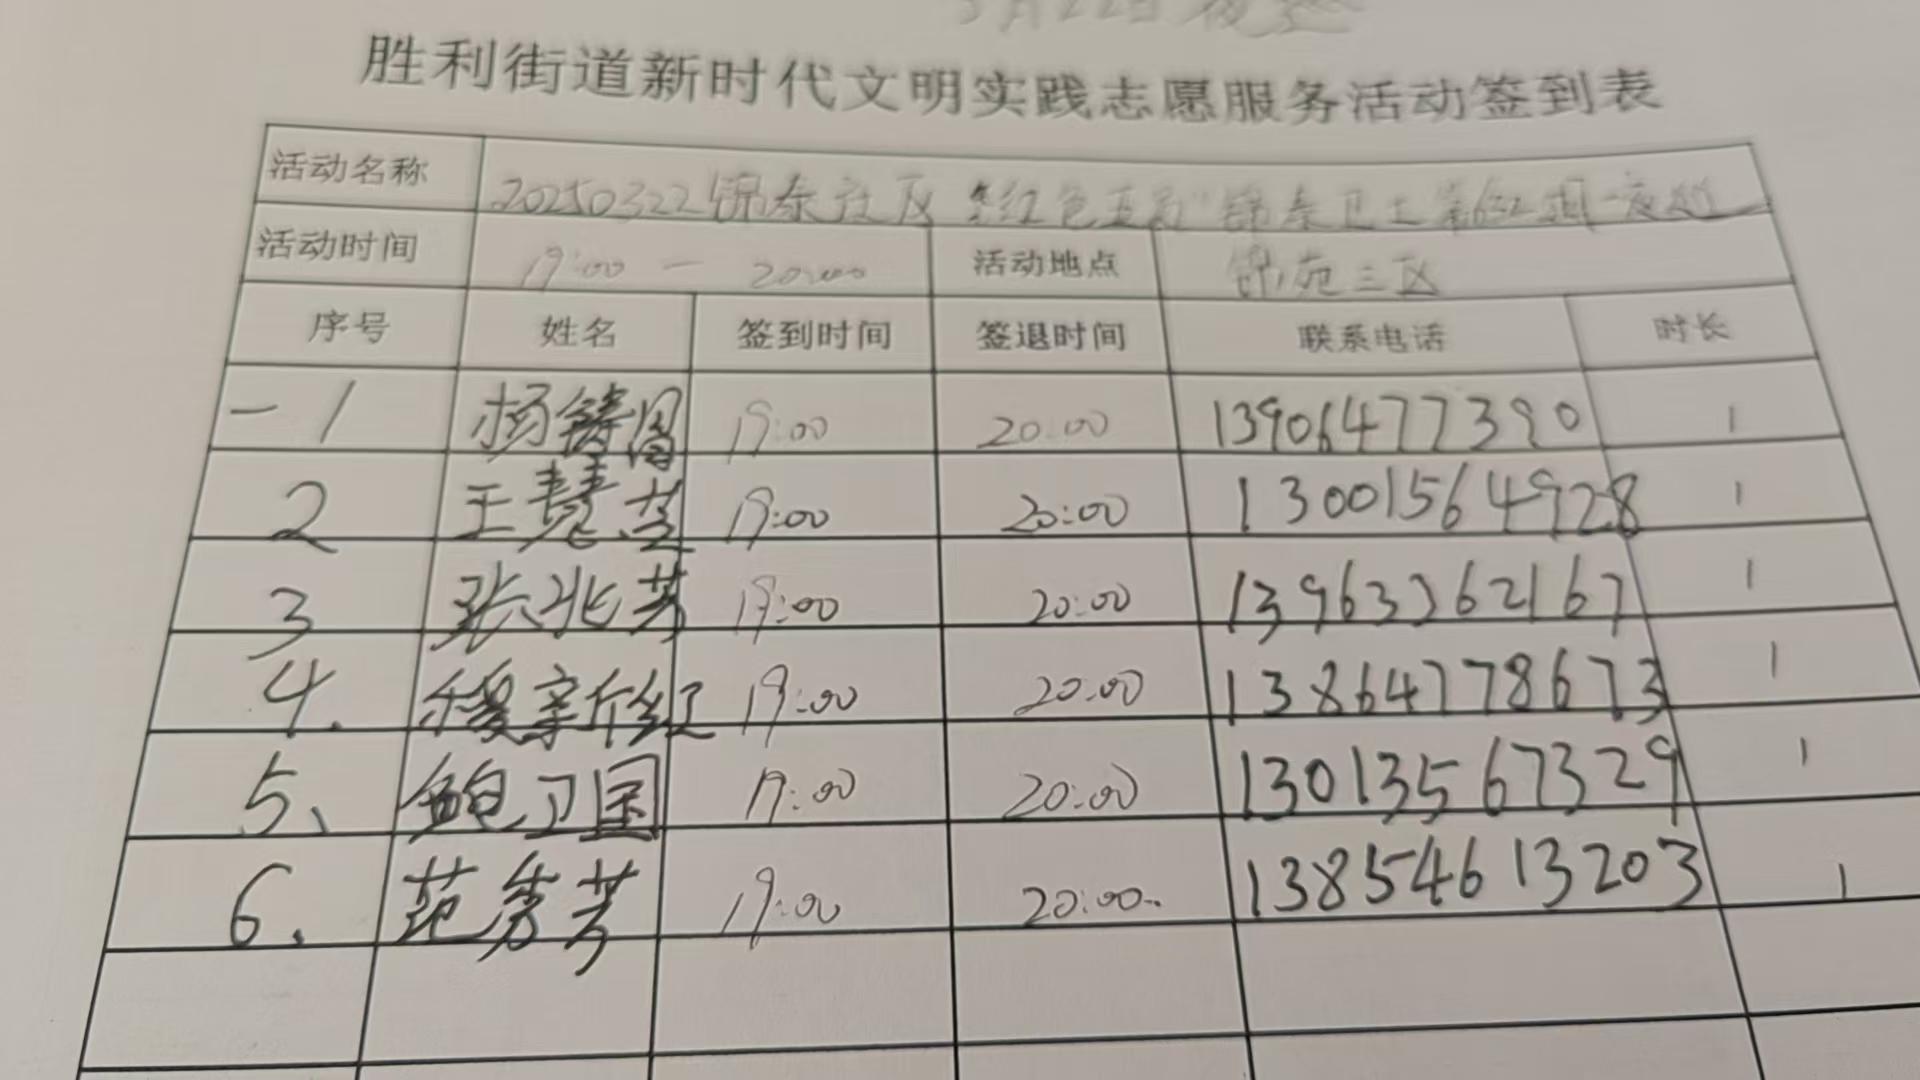 3月22日夜巡
胜利街道新时代文明实践志愿服务活动签到表
活动名称 20250322锦泰社区"红色 "锦泰卫士第 期-夜巡
活动时间 19:00 — 20:00 活动地点 锦苑三区
序号 姓名 签到时间 签退时间 联系电话 时长
1 杨铸 19:00 20:00 13906477390 1
2 王慧芝 19:00 20:00 13001564928 1
3 张兆芳 19:00 20:00 13963362167 1
4. 穆新红 19:00 20:00 13864778673 1
5、 鲍卫国 19:00 20:00 13013567329 1
6. 范秀芳 19:00 20:00 13854613203 1